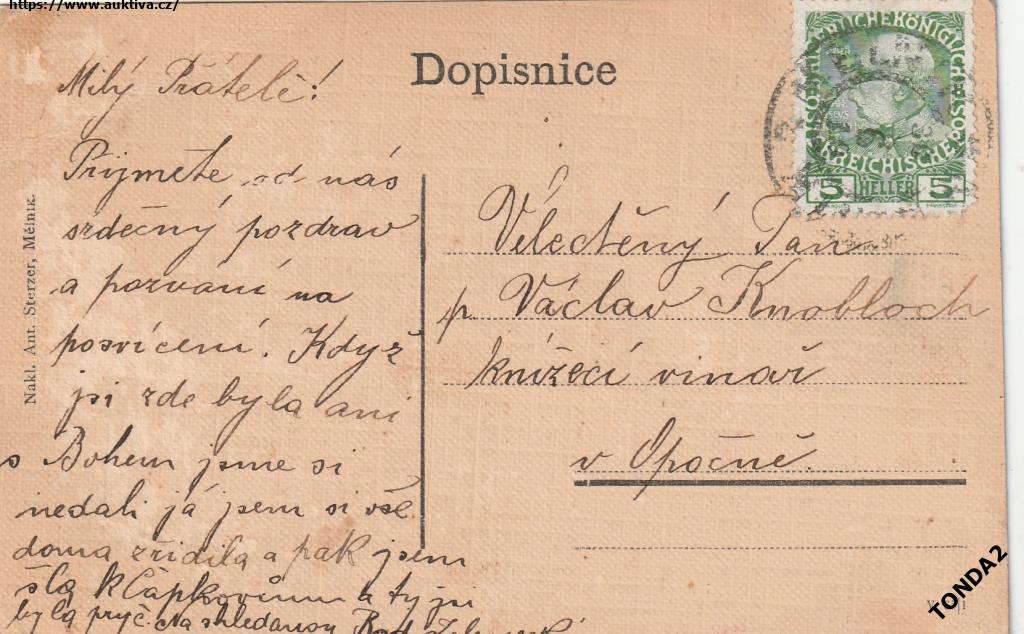 https://www.auktiva.cz/
Dopisnice
Nakl. Ant. Sterzer, Mělník.
Milý Přátelé!
Přijmete od nás
srdečný pozdrav
a pozvání na
posvícení. Když
jsi zde byla ani
s Bohem jsme si
nedali já jsem si vše
doma zřídila a pak jsem
šla k Čápkovům a ty jsi
byla pryč. Na shledanou
Velectěný Pan
p. Václav Knobloch
knížecí vinař
v Opočně.
5 HELLER 5
TONDA2